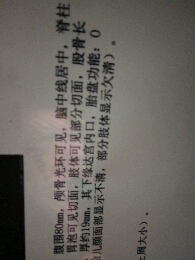 腹围80mm，颅骨光环可见，脑中线居中，脊柱
胃泡可见切面，肢体可见部分切面，股骨长
厚约19mm，其下缘达宫内口，胎盘功能：0
儿颜面部显示不清，部分肢体显示欠清）。
周大小）。